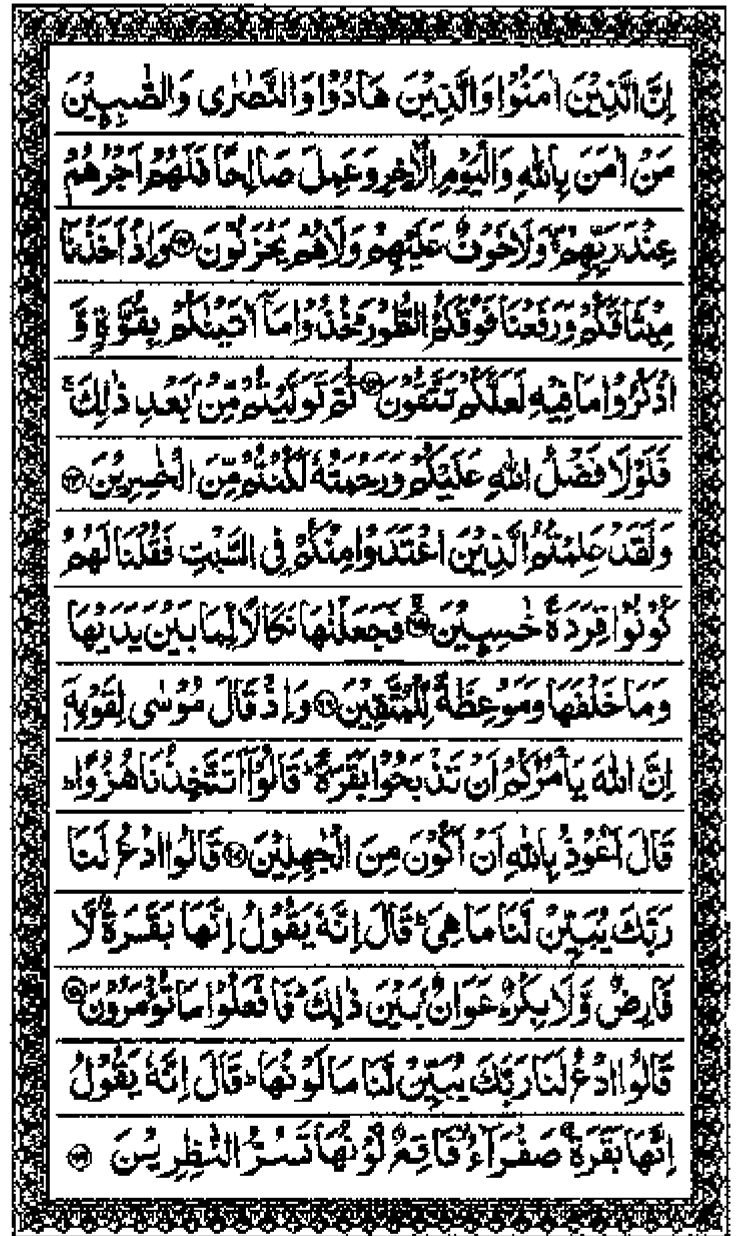 اِنَّ الَّذِيْنَ اٰمَنُوْا وَالَّذِيْنَ هَادُوْا وَالنَّصٰرٰى وَالصّٰبِـِٕيْنَ
مَنْ اٰمَنَ بِاللّٰهِ وَالْيَوْمِ الْاٰخِرِ وَعَمِلَ صَالِحًا فَلَهُمْ اَجْرُهُمْ
عِنْدَ رَبِّهِمْ ۚ وَلَا خَوْفٌ عَلَيْهِمْ وَلَا هُمْ يَحْزَنُوْنَ ۝۶۲ وَاِذْ اَخَذْنَا
مِيْثَاقَكُمْ وَرَفَعْنَا فَوْقَكُمُ الطُّوْرَ ؕ خُذُوْا مَاۤ اٰتَيْنٰكُمْ بِقُوَّةٍ وَّ
اذْكُرُوْا مَا فِيْهِ لَعَلَّكُمْ تَتَّقُوْنَ ۝۶۳ ثُمَّ تَوَلَّيْتُمْ مِّنْۢ بَعْدِ ذٰلِكَ ۚ
فَلَوْلَا فَضْلُ اللّٰهِ عَلَيْكُمْ وَرَحْمَتُهٗ لَكُنْتُمْ مِّنَ الْخٰسِرِيْنَ ۝۶۴
وَلَقَدْ عَلِمْتُمُ الَّذِيْنَ اعْتَدَوْا مِنْكُمْ فِى السَّبْتِ فَقُلْنَا لَهُمْ
كُوْنُوْا قِرَدَةً خٰسِـِٕيْنَ ۝۶۵ فَجَعَلْنٰهَا نَكَالًا لِّمَا بَيْنَ يَدَيْهَا
وَمَا خَلْفَهَا وَمَوْعِظَةً لِّلْمُتَّقِيْنَ ۝۶۶ وَاِذْ قَالَ مُوْسٰى لِقَوْمِهٖۤ
اِنَّ اللّٰهَ يَاْمُرُكُمْ اَنْ تَذْبَحُوْا بَقَرَةً ؕ قَالُوْۤا اَتَتَّخِذُنَا هُزُوًا ؕ
قَالَ اَعُوْذُ بِاللّٰهِ اَنْ اَكُوْنَ مِنَ الْجٰهِلِيْنَ ۝۶۷ قَالُوا ادْعُ لَنَا
رَبَّكَ يُبَيِّنْ لَّنَا مَا هِىَ ؕ قَالَ اِنَّهٗ يَقُوْلُ اِنَّهَا بَقَرَةٌ لَّا
فَارِضٌ وَّلَا بِكْرٌ ؕ عَوَانٌۢ بَيْنَ ذٰلِكَ ؕ فَافْعَلُوْا مَا تُؤْمَرُوْنَ ۝۶۸
قَالُوا ادْعُ لَنَا رَبَّكَ يُبَيِّنْ لَّنَا مَا لَوْنُهَا ؕ قَالَ اِنَّهٗ يَقُوْلُ
اِنَّهَا بَقَرَةٌ صَفْرَآءُ ۙ فَاقِعٌ لَّوْنُهَا تَسُرُّ النّٰظِرِيْنَ ۝۶۹